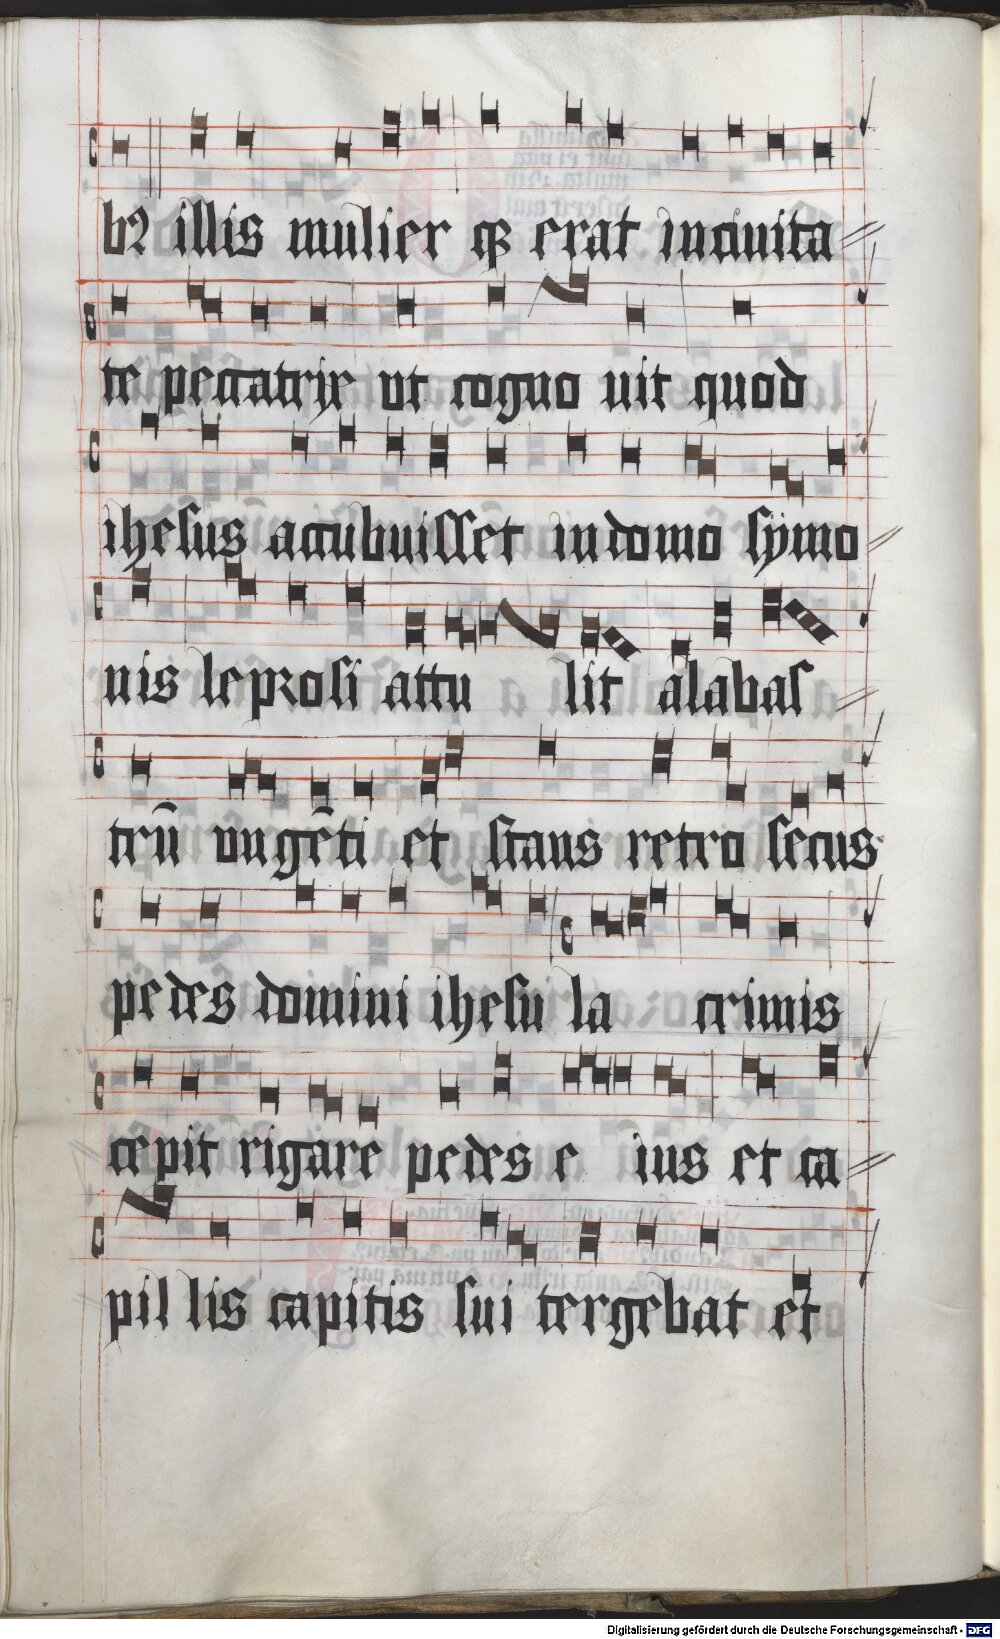 bꝫ illis mulier qꝫ erat in ciuita⸗
te peccatrix vt cogno uit quod
ihesus accubuisset in domo symo⸗
nis leprosi attu lit alabas⸗
trū vngēti et stans retro secus
pedes domini ihesu la crimis
cepit rigare pedes e ius et ca⸗
pil lis capitis sui tergebat et
Digitalisierung gefördert durch die Deutsche Forschungsgemeinschaft - DFG